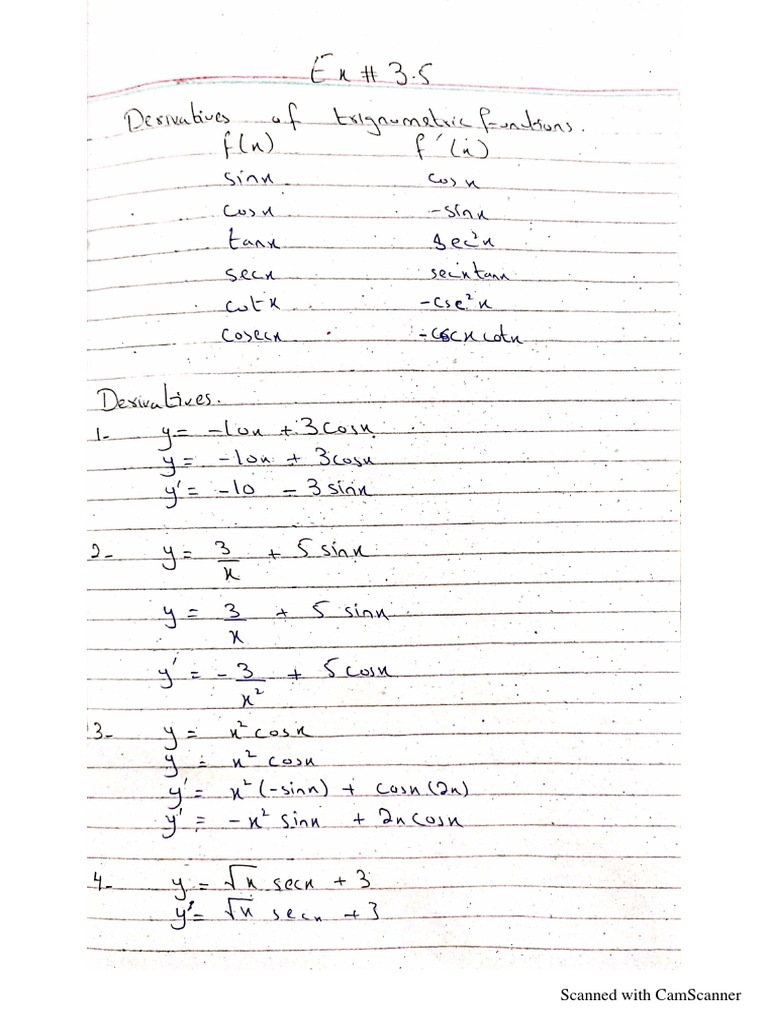 Ex # 3.5
Derivatives of trignumetric functions.
f(x) f'(x)
sinx cosx
cosx -sinx
tanx sec²x
secx secxtanx
cotx -csc²x
cosecx -cscx cotx
Derivatives.
1- y = -10x + 3cosx
y = -10x + 3cosx
y' = -10 - 3 sinx
2- y = 3/x + 5 sinx
y = 3/x + 5 sinx
y' = -3/x² + 5cosx
3- y = x² cosx
y = x² cosx
y' = x² (-sinx) + cosx (2x)
y' = -x² sinx + 2x cosx
4- y = √x secx + 3
y' = √x secx + 3
Scanned with CamScanner